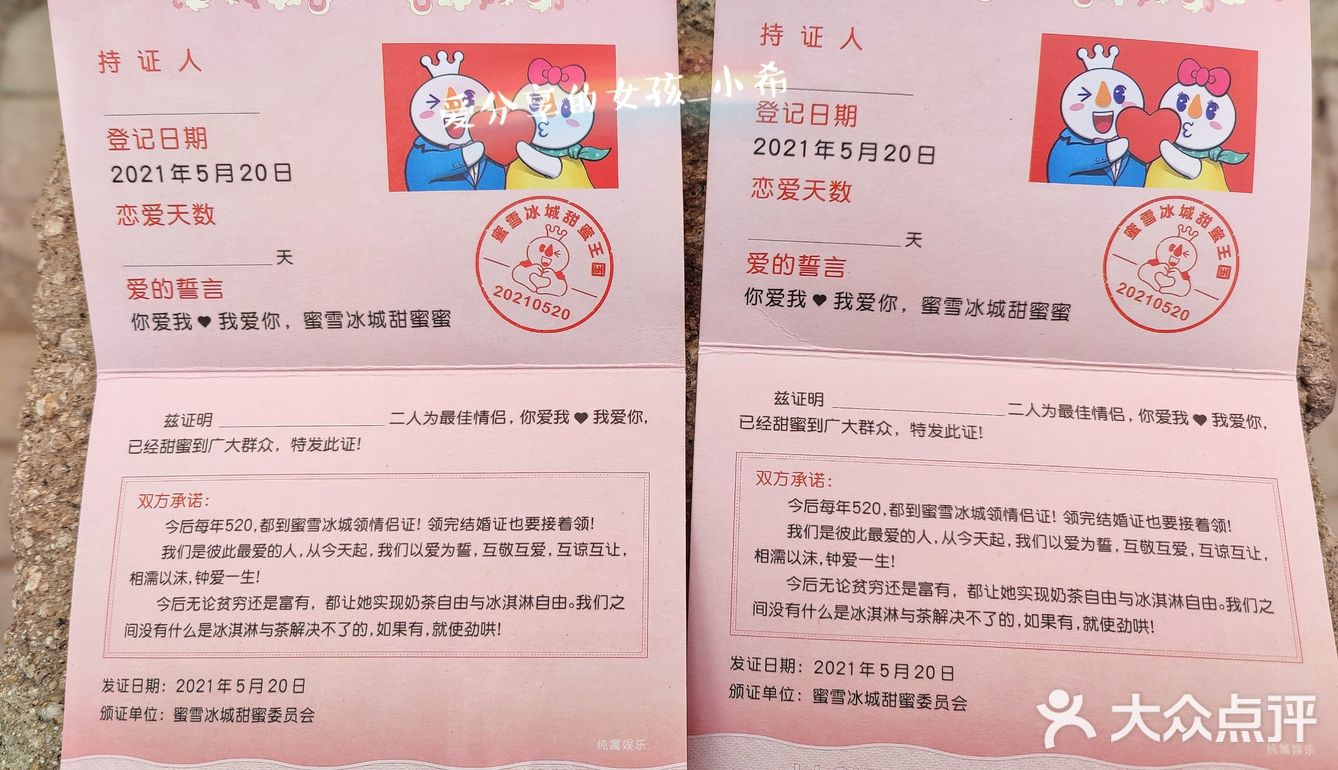 持证人
登记日期
2021年5月20日
恋爱天数
天
爱的誓言
你爱我♥我爱你，蜜雪冰城甜蜜蜜
蜜雪冰城甜蜜王国
20210520
兹证明 二人为最佳情侣，你爱我♥我爱你，
已经甜蜜到广大群众，特发此证！
双方承诺：
今后每年520，都到蜜雪冰城领情侣证！领完结婚证也要接着领！
我们是彼此最爱的人，从今天起，我们以爱为誓，互敬互爱，互谅互让，
相濡以沫，钟爱一生！
今后无论贫穷还是富有，都让她实现奶茶自由与冰淇淋自由。我们之
间没有什么是冰淇淋与茶解决不了的，如果有，就使劲哄！
发证日期：2021年5月20日
颁证单位：蜜雪冰城甜蜜委员会
纯属娱乐
爱分享的女孩_小希
持证人
登记日期
2021年5月20日
恋爱天数
天
爱的誓言
你爱我♥我爱你，蜜雪冰城甜蜜蜜
蜜雪冰城甜蜜王国
20210520
兹证明 二人为最佳情侣，你爱我♥我爱你，
已经甜蜜到广大群众，特发此证！
双方承诺：
今后每年520，都到蜜雪冰城领情侣证！领完结婚证也要接着领！
我们是彼此最爱的人，从今天起，我们以爱为誓，互敬互爱，互谅互让，
相濡以沫，钟爱一生！
今后无论贫穷还是富有，都让她实现奶茶自由与冰淇淋自由。我们之
间没有什么是冰淇淋与茶解决不了的，如果有，就使劲哄！
发证日期：2021年5月20日
颁证单位：蜜雪冰城甜蜜委员会
纯属娱乐
大众点评